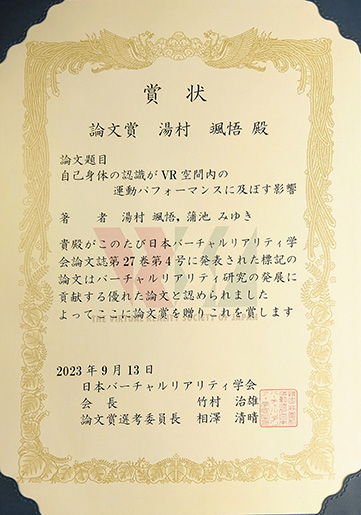 賞状
論文賞 湯村 颯悟 殿
論文題目
自己身体の認識がVR空間内の
運動パフォーマンスに及ぼす影響
著者 湯村 颯悟, 蒲池 みゆき
貴殿がこのたび日本バーチャルリアリティ学
会論文誌第27巻第4号に発表された標記の
論文はバーチャルリアリティ研究の発展に
貢献する優れた論文と認められました
よってここに論文賞を贈りこれを賞します
THE VIRTUAL REALITY SOCIETY OF JAPAN
2023年9月13日
日本バーチャルリアリティ学会
会長 竹村 治雄
論文賞選考委員長 相澤 清晴